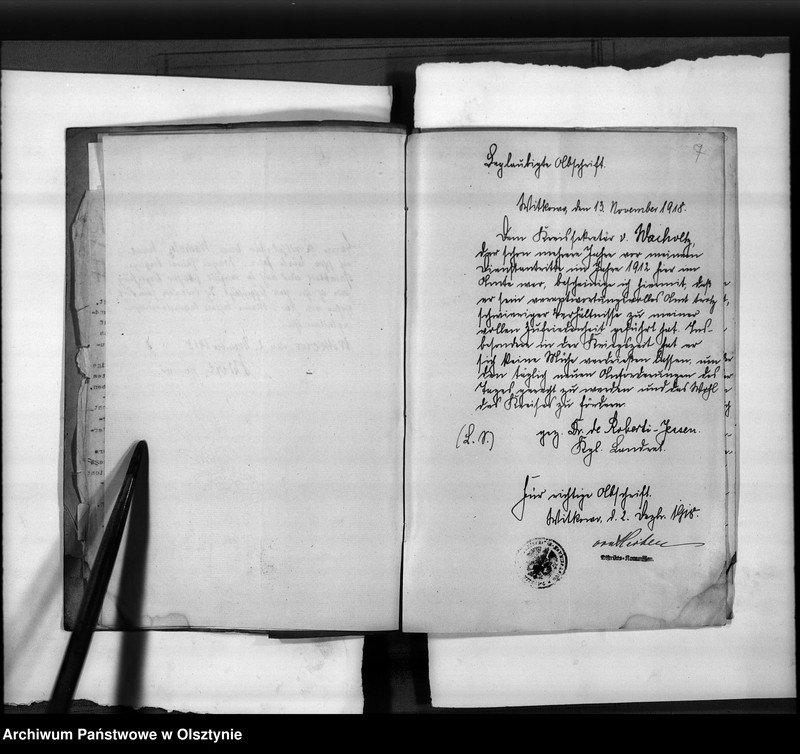 9
Beglaubigte Abschrift.
Witkowo, den 13. November 1918.
Dem Kreissekretär v. Wacholtz,
der schon mehrere Jahre vor meinem
Dienstantritte im Jahre 1912 hier im
Amte war, bescheinige ich hiermit, daß
er sein verantwortungsvolles Amt trotz
schwieriger Verhältnisse zu meiner
vollen Zufriedenheit geführt hat. Ins-
besondere in der Kriegszeit hat er
sich keine Mühe verdrießen lassen, um
den täglich neuen Anforderungen des
Tages gerecht zu werden und das Wohl
des Kreises zu fördern.
(L. S.) gez. Dr. de Roberti-Jessen.
Kgl. Landrat.
Für richtige Abschrift.
Witkowo, d. 2. Dezbr. 1918.
Distrikts-Kommissar.
Archiwum Państwowe w Olsztynie